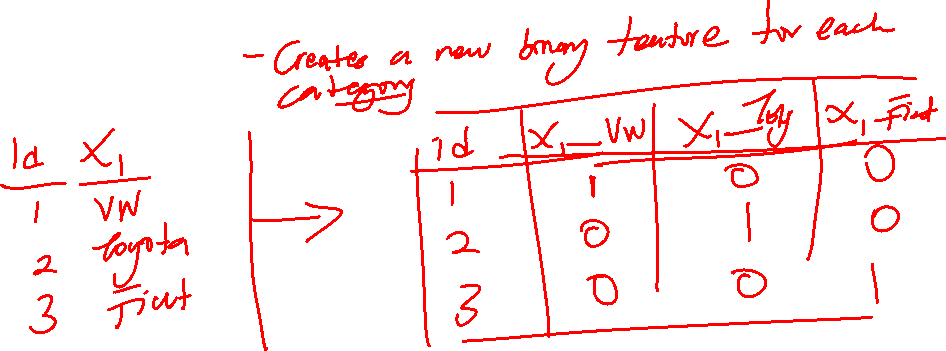 - Creates a new binary feature for each
category
Id X₁
1 VW
2 Toyota
3 Fiat
Id X₁_VW X₁_Toy X₁_Fiat
1 1 0 0
2 0 1 0
3 0 0 1